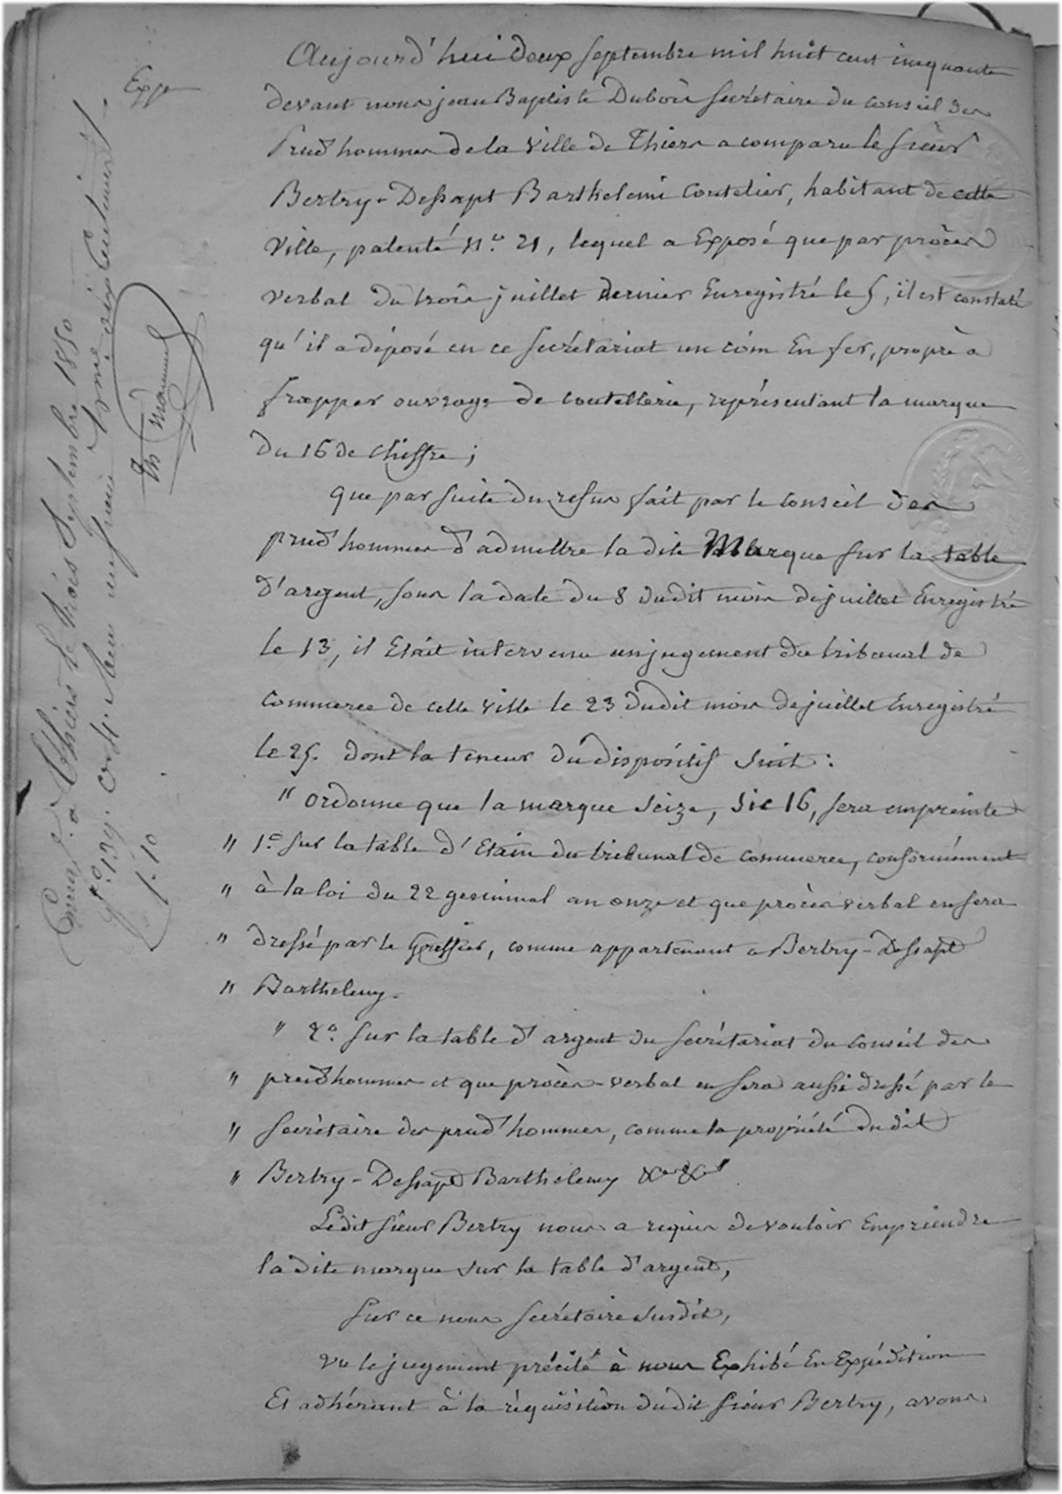 Aujourd'hui deux septembre mil huit cent cinquante
devant nous jean Baptiste Dubois secrétaire du conseil des
Prud'hommes de la ville de Thiers a comparu le sieur
Bertry-Dessapt Barthelemi coutelier, habitant de cette
ville, patenté N.o 21, lequel a Exposé que par procès
verbal du trois juillet dernier Enregistré le 5, il est constaté
qu'il a déposé en ce secrétariat un coin En fer, propre à
frapper ouvrage de coutellerie, représentant la marque
du 16 de chiffre ;
que par suite du refus fait par le conseil des
prud'hommes d'admettre la dite Marque sur la table
d'argent, sous la date du 8 dudit mois de juillet Enregistré
le 13, il Etait intervenu un jugement du tribunal de
commerce de cette ville le 23 dudit mois de juillet Enregistré
le 25. dont la teneur du dispositif suit :
" ordonne que la marque seize, sic 16, sera empreinte
" 1.o sur la table d'Etain du tribunal de commerce, conformément
" à la loi du 22 germinal an onze et que procès verbal en sera
" dressé par le Greffier, comme appartenant a Bertry-Dessapt
" Barthelemy.
" 2.o sur la table d'argent du secrétariat du conseil des
" prud'hommes et que procès-verbal en sera aussi dressé par le
" secrétaire des prud'hommes, comme la propriété dudit
" Bertry-Dessapt Barthelemy &a &a
Ledit sieur Bertry nous a requis de vouloir Empreindre
la dite marque sur la table d'argent,
Sur ce nous secrétaire susdit,
vu le jugement précité à nous Exhibé En Expédition
Et adhérant à la réquisition dudit sieur Bertry, avons
Enreg.é à Thiers le trois Septembre 1850
f.o 139. un franc dix centimes
1.10